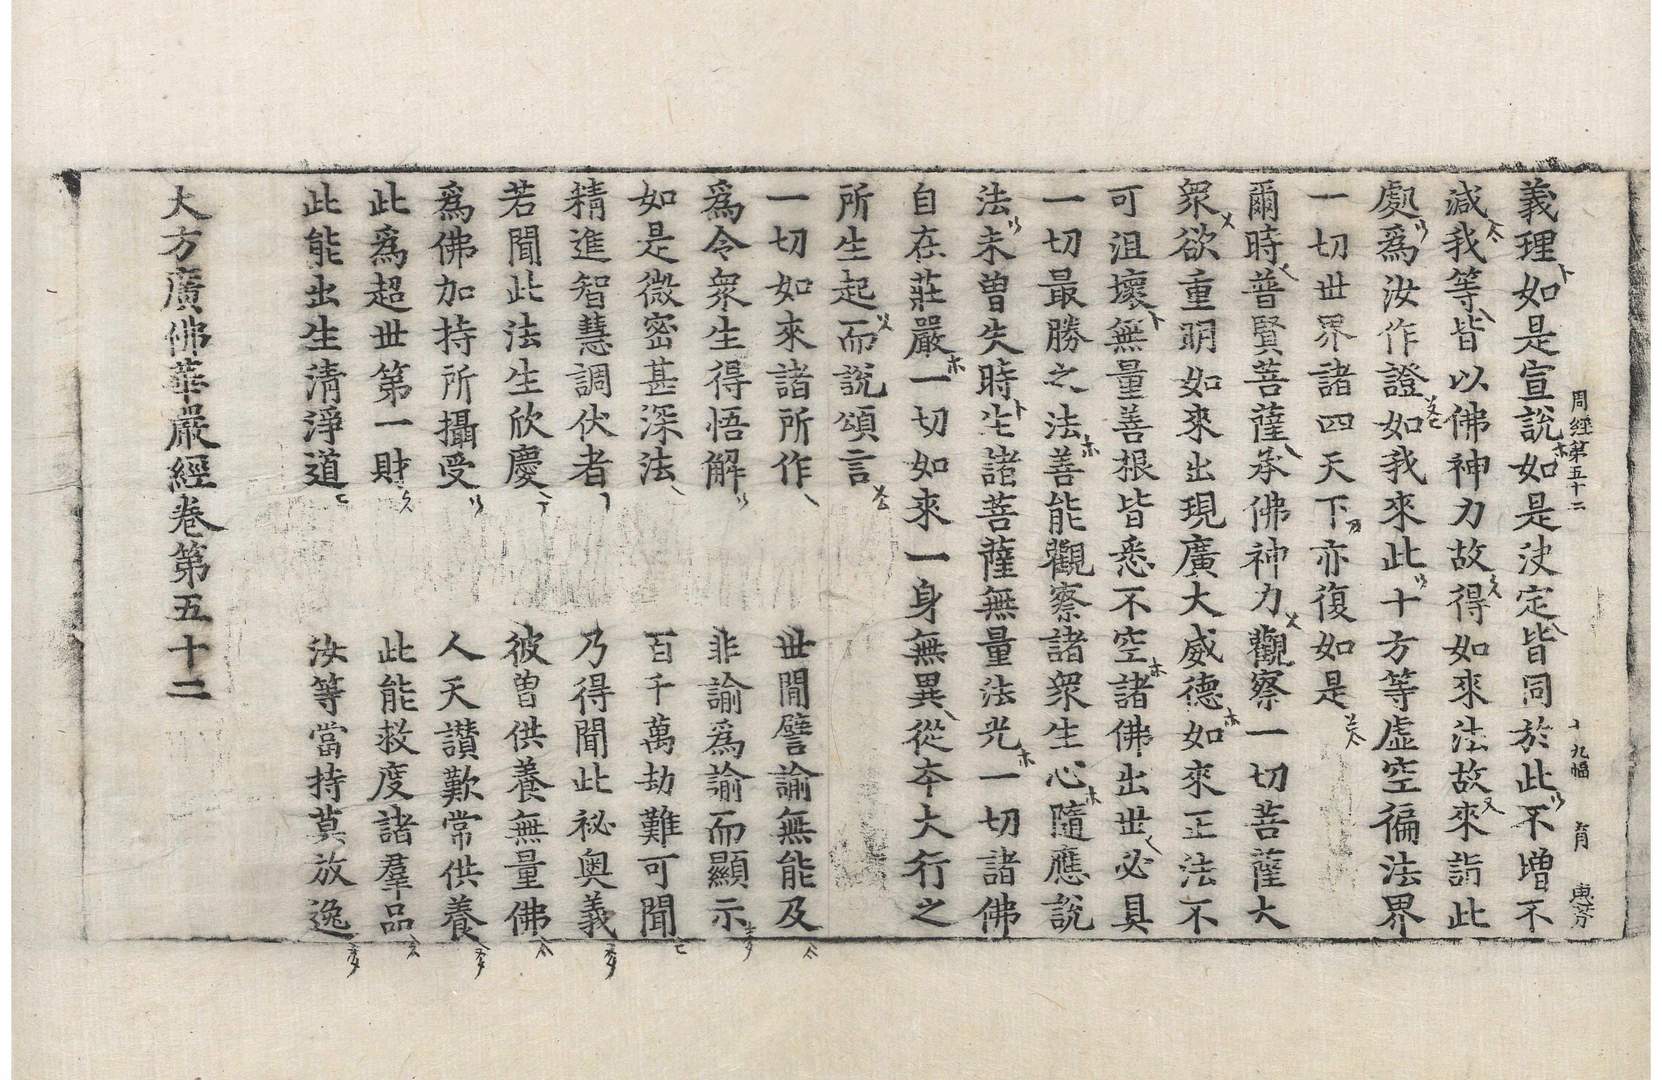 周經第五十二 十九幅 育 惠芬
義理如是宣說如是決定皆同於此不增不
減我等皆以佛神力故得如來法故來詣此
處為汝作證如我來此十方等虛空徧法界
一切世界諸四天下亦復如是
爾時普賢菩薩承佛神力觀察一切菩薩大
衆欲重明如來出現廣大威德如來正法不
可沮壞無量善根皆悉不空諸佛出世必具
一切最勝之法善能觀察諸衆生心隨應說
法未曾失時生諸菩薩無量法光一切諸佛
自在莊嚴一切如來一身無異從本大行之
所生起而說頌言
一切如來諸所作 世間譬諭無能及
為令衆生得悟解 非諭為諭而顯示
如是微密甚深法 百千萬劫難可聞
精進智慧調伏者 乃得聞此祕奧義
若聞此法生欣慶 彼曾供養無量佛
為佛加持所攝受 人天讚歎常供養
此為超世第一財 此能救度諸羣品
此能出生清淨道 汝等當持莫放逸
大方廣佛華嚴經卷第五十二